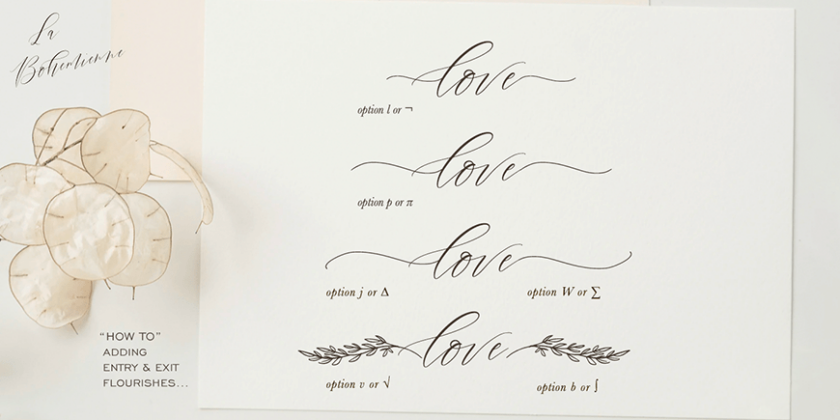 La
Bohemienne
love
option l or ¬
love
option p or π
love
option j or ∆
option W or ∑
love
option v or √
option b or ∫
“HOW TO”
ADDING
ENTRY & EXIT
FLOURISHES...